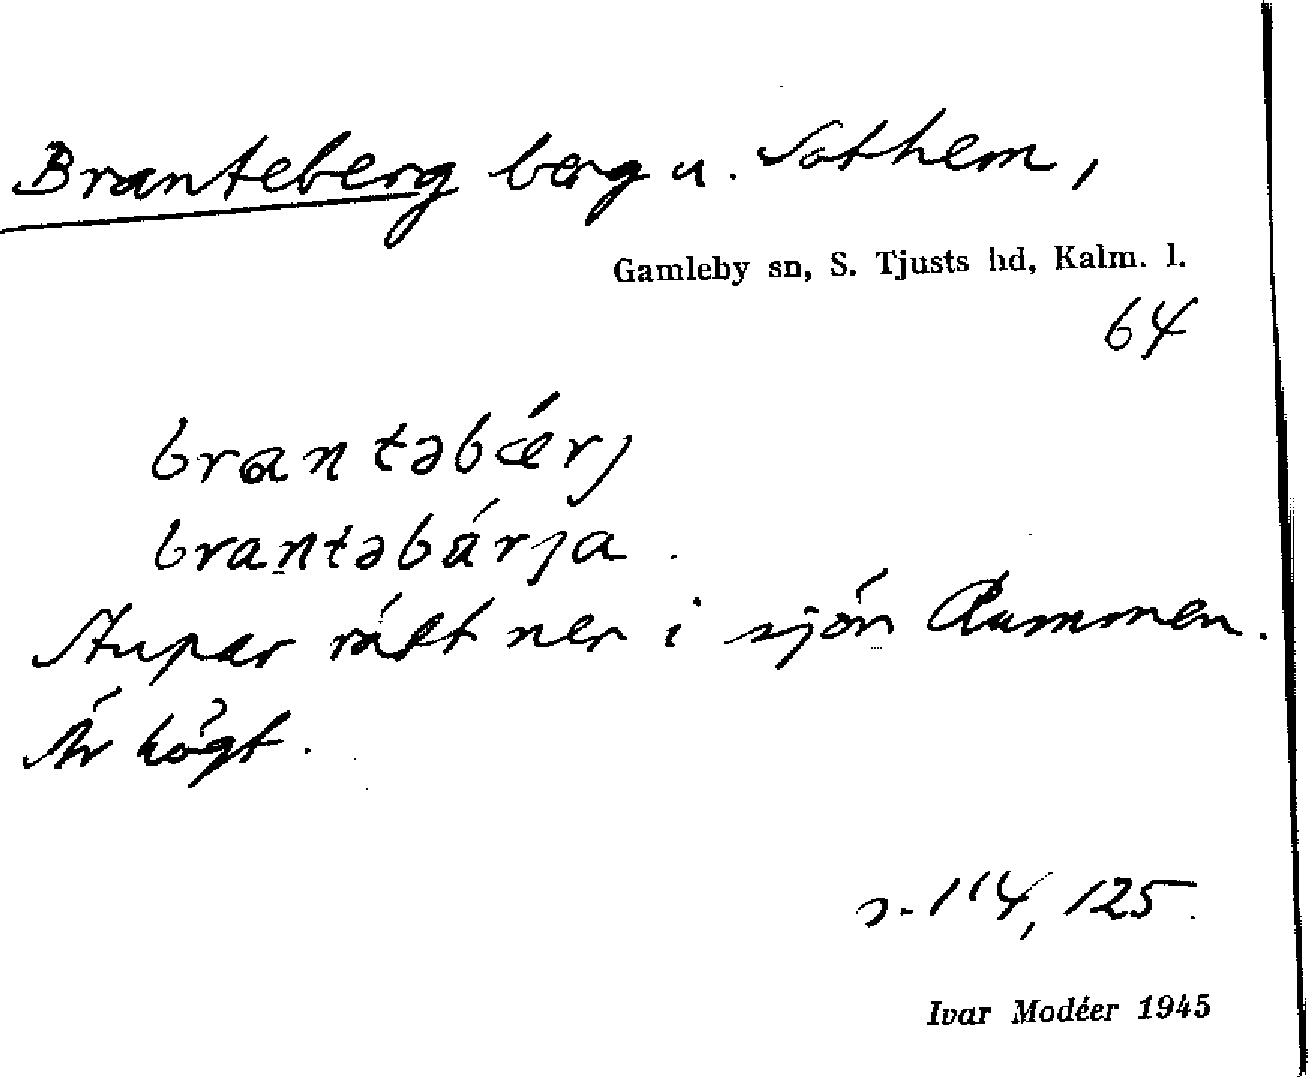 Branteberg berg u. Sothem,
Gamleby sn, S. Tjusts hd, Kalm. l.
64
brantəbǽrj
brantəbárja.
Stupar rätt ner i sjön Rummen.
Är högt.
s. 114, 125.
Ivar Modéer 1945